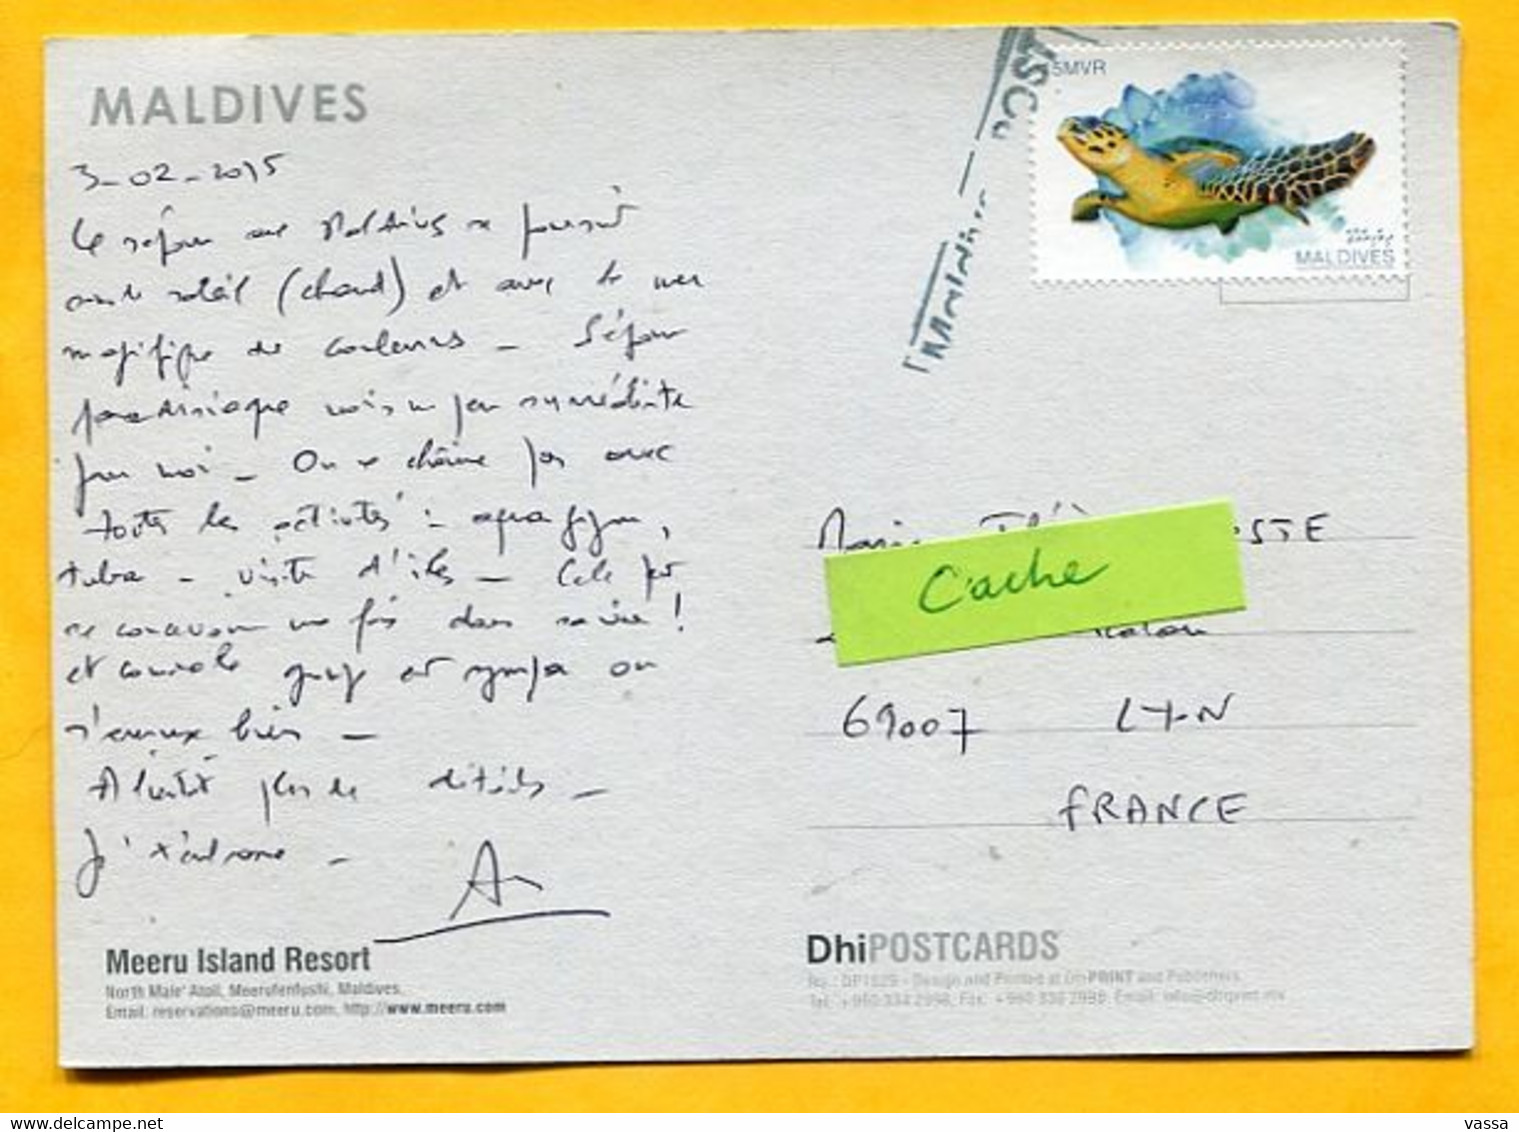 MALDIVES
3-02-2015
Le séjour aux Maldives se poursuit
sous le soleil (chaud) et avec la mer
magnifique de couleurs - Séjour
paradisiaque mais un peu sumédiate
pour moi - On se chaîne pas avec
toutes les activités : aquagym,
tuba - visite d'îles - Cela fait
une fois dans sa vie !
et comme le groupe est sympa on
s'amuse bien -
A bientôt plus de détails -
Je t'embrasse -
POST
Maldives
5MVR
MALDIVES
Marie OSTE
Cache
69007 LYON
FRANCE
Meeru Island Resort
North Male' Atoll, Meerufenfushi, Maldives.
Email: reservations@meeru.com, http://www.meeru.com
DhiPOSTCARDS
No.: DP1529 - Design and Printed at DhiPRINT and Publishers
Tel: +960 334 2998, Fax: +960 336 2998, Email: info@dhiprint.mv
delcampe.net
vassa